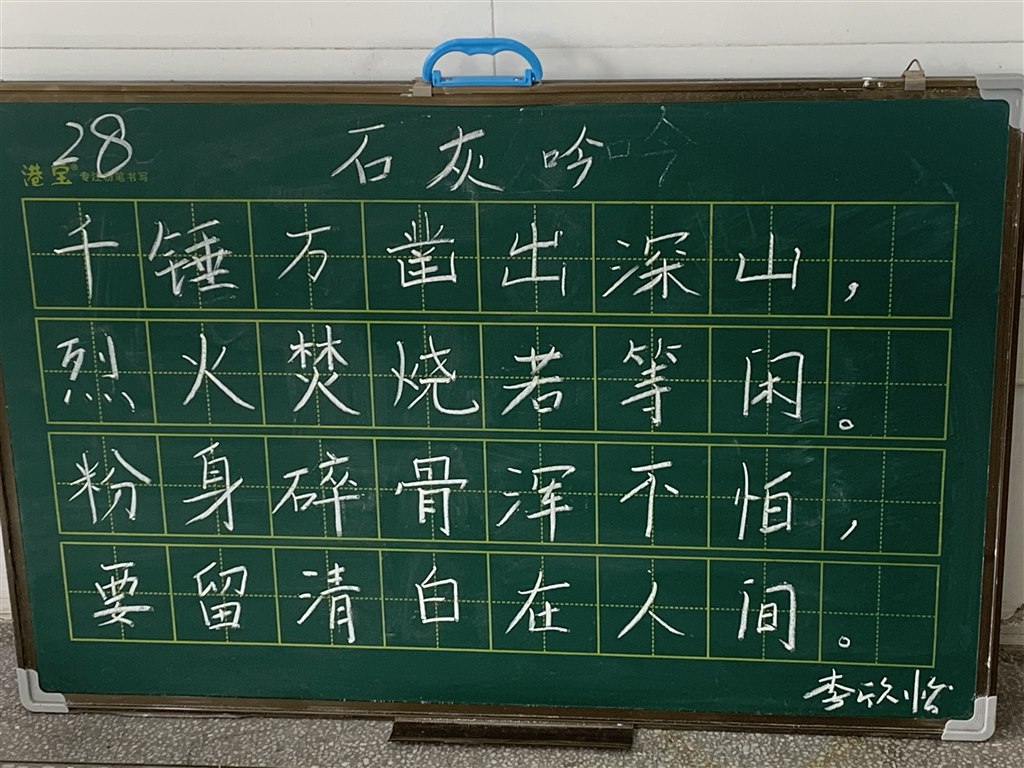 28
石灰吟
港宝® 专注粉笔书写
千锤万凿出深山，
烈火焚烧若等闲。
粉身碎骨浑不怕，
要留清白在人间。
李欣怡